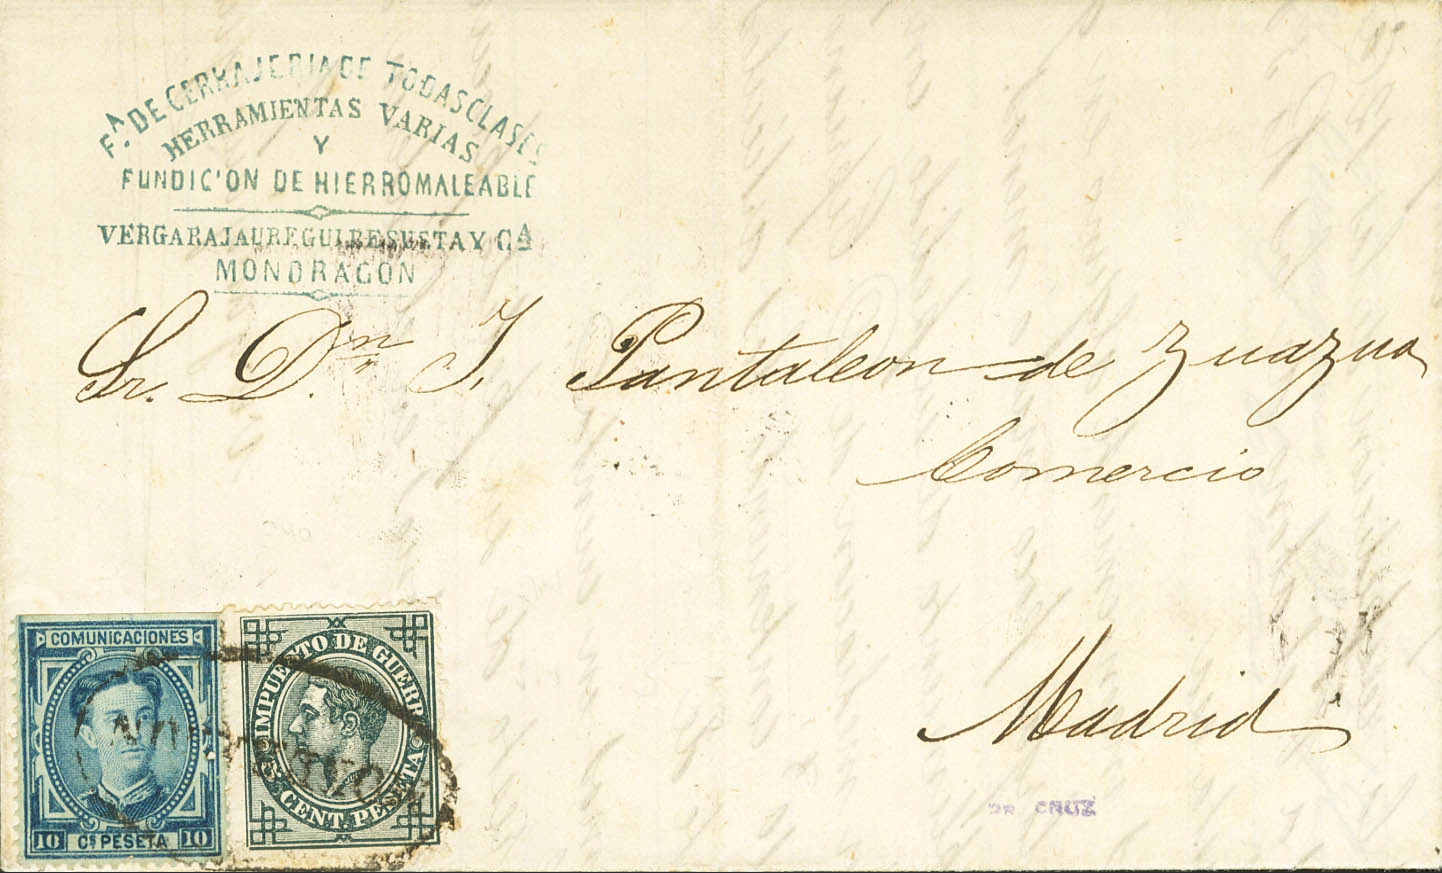 Fª. DE CERRAJERIA DE TODAS CLASES
HERRAMIENTAS VARIAS
Y
FUNDIC'ON DE HIERRO MALEABLE
VERGARAJAUREGUI RESUSTA Y Cª
MONDRAGON
Sr. Dn. J. Pantaleon de Zuazua
Comercio
Madrid
COMUNICACIONES
10 Cs PESETA 10
IMPUESTO DE GUERRA
5 CENT. PESETA
CRUZ